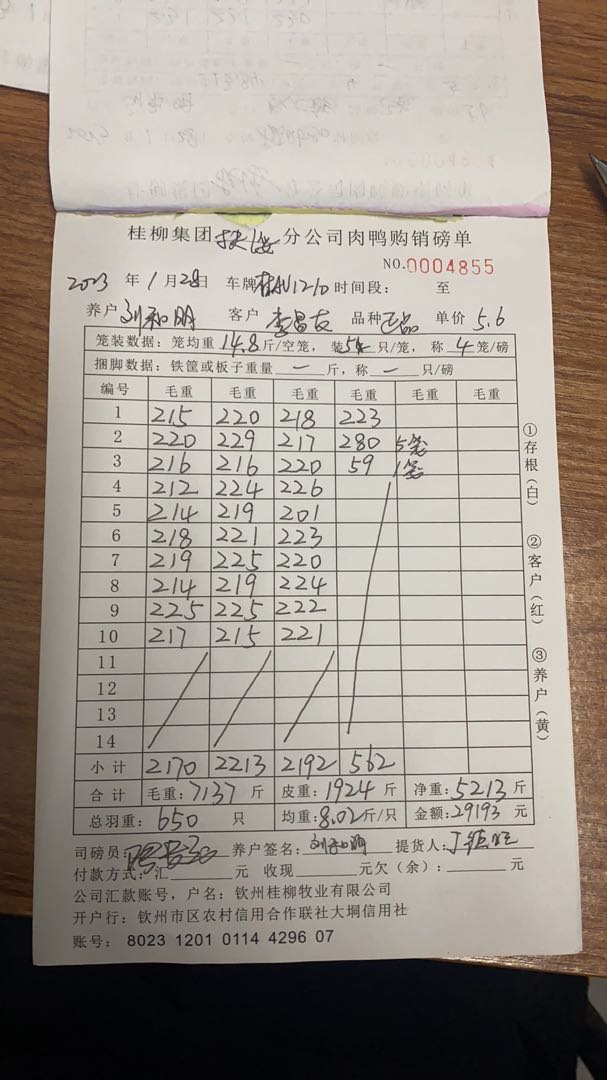 桂柳集团 分公司肉鸭购销磅单
NO.0004855
2023 年 1 月 28日 车牌 桂AU1210 时间段： 至
养户 刘和明 客户 李昌友 品种 正品 单价 5.6
笼装数据：笼均重 14.8 斤/空笼，装 5 只/笼，称 4 笼/磅
捆脚数据：铁筐或板子重量 一 斤，称 一 只/磅
编号 毛重 毛重 毛重 毛重 毛重 毛重
1 215 220 218 223
2 220 229 217 280 5笼
3 216 216 220 59 1笼
4 212 224 226
5 214 219 201
6 218 221 223
7 219 225 220
8 214 219 224
9 225 225 222
10 217 215 221
11
12
13
14
小计 2170 2213 2192 562
合计 毛重：7137 斤 皮重：1924 斤 净重：5213 斤
总羽重： 650 只 均重：8.02 斤/只 金额：29193 元
司磅员： 养户签名：刘和明 提货人：
付款方式：汇 元 收现 元欠（余）： 元
公司汇款账号，户名：钦州桂柳牧业有限公司
开户行：钦州市区农村信用合作联社大垌信用社
账号：8023 1201 0114 4296 07
①存根（白）
②客户（红）
③养户（黄）